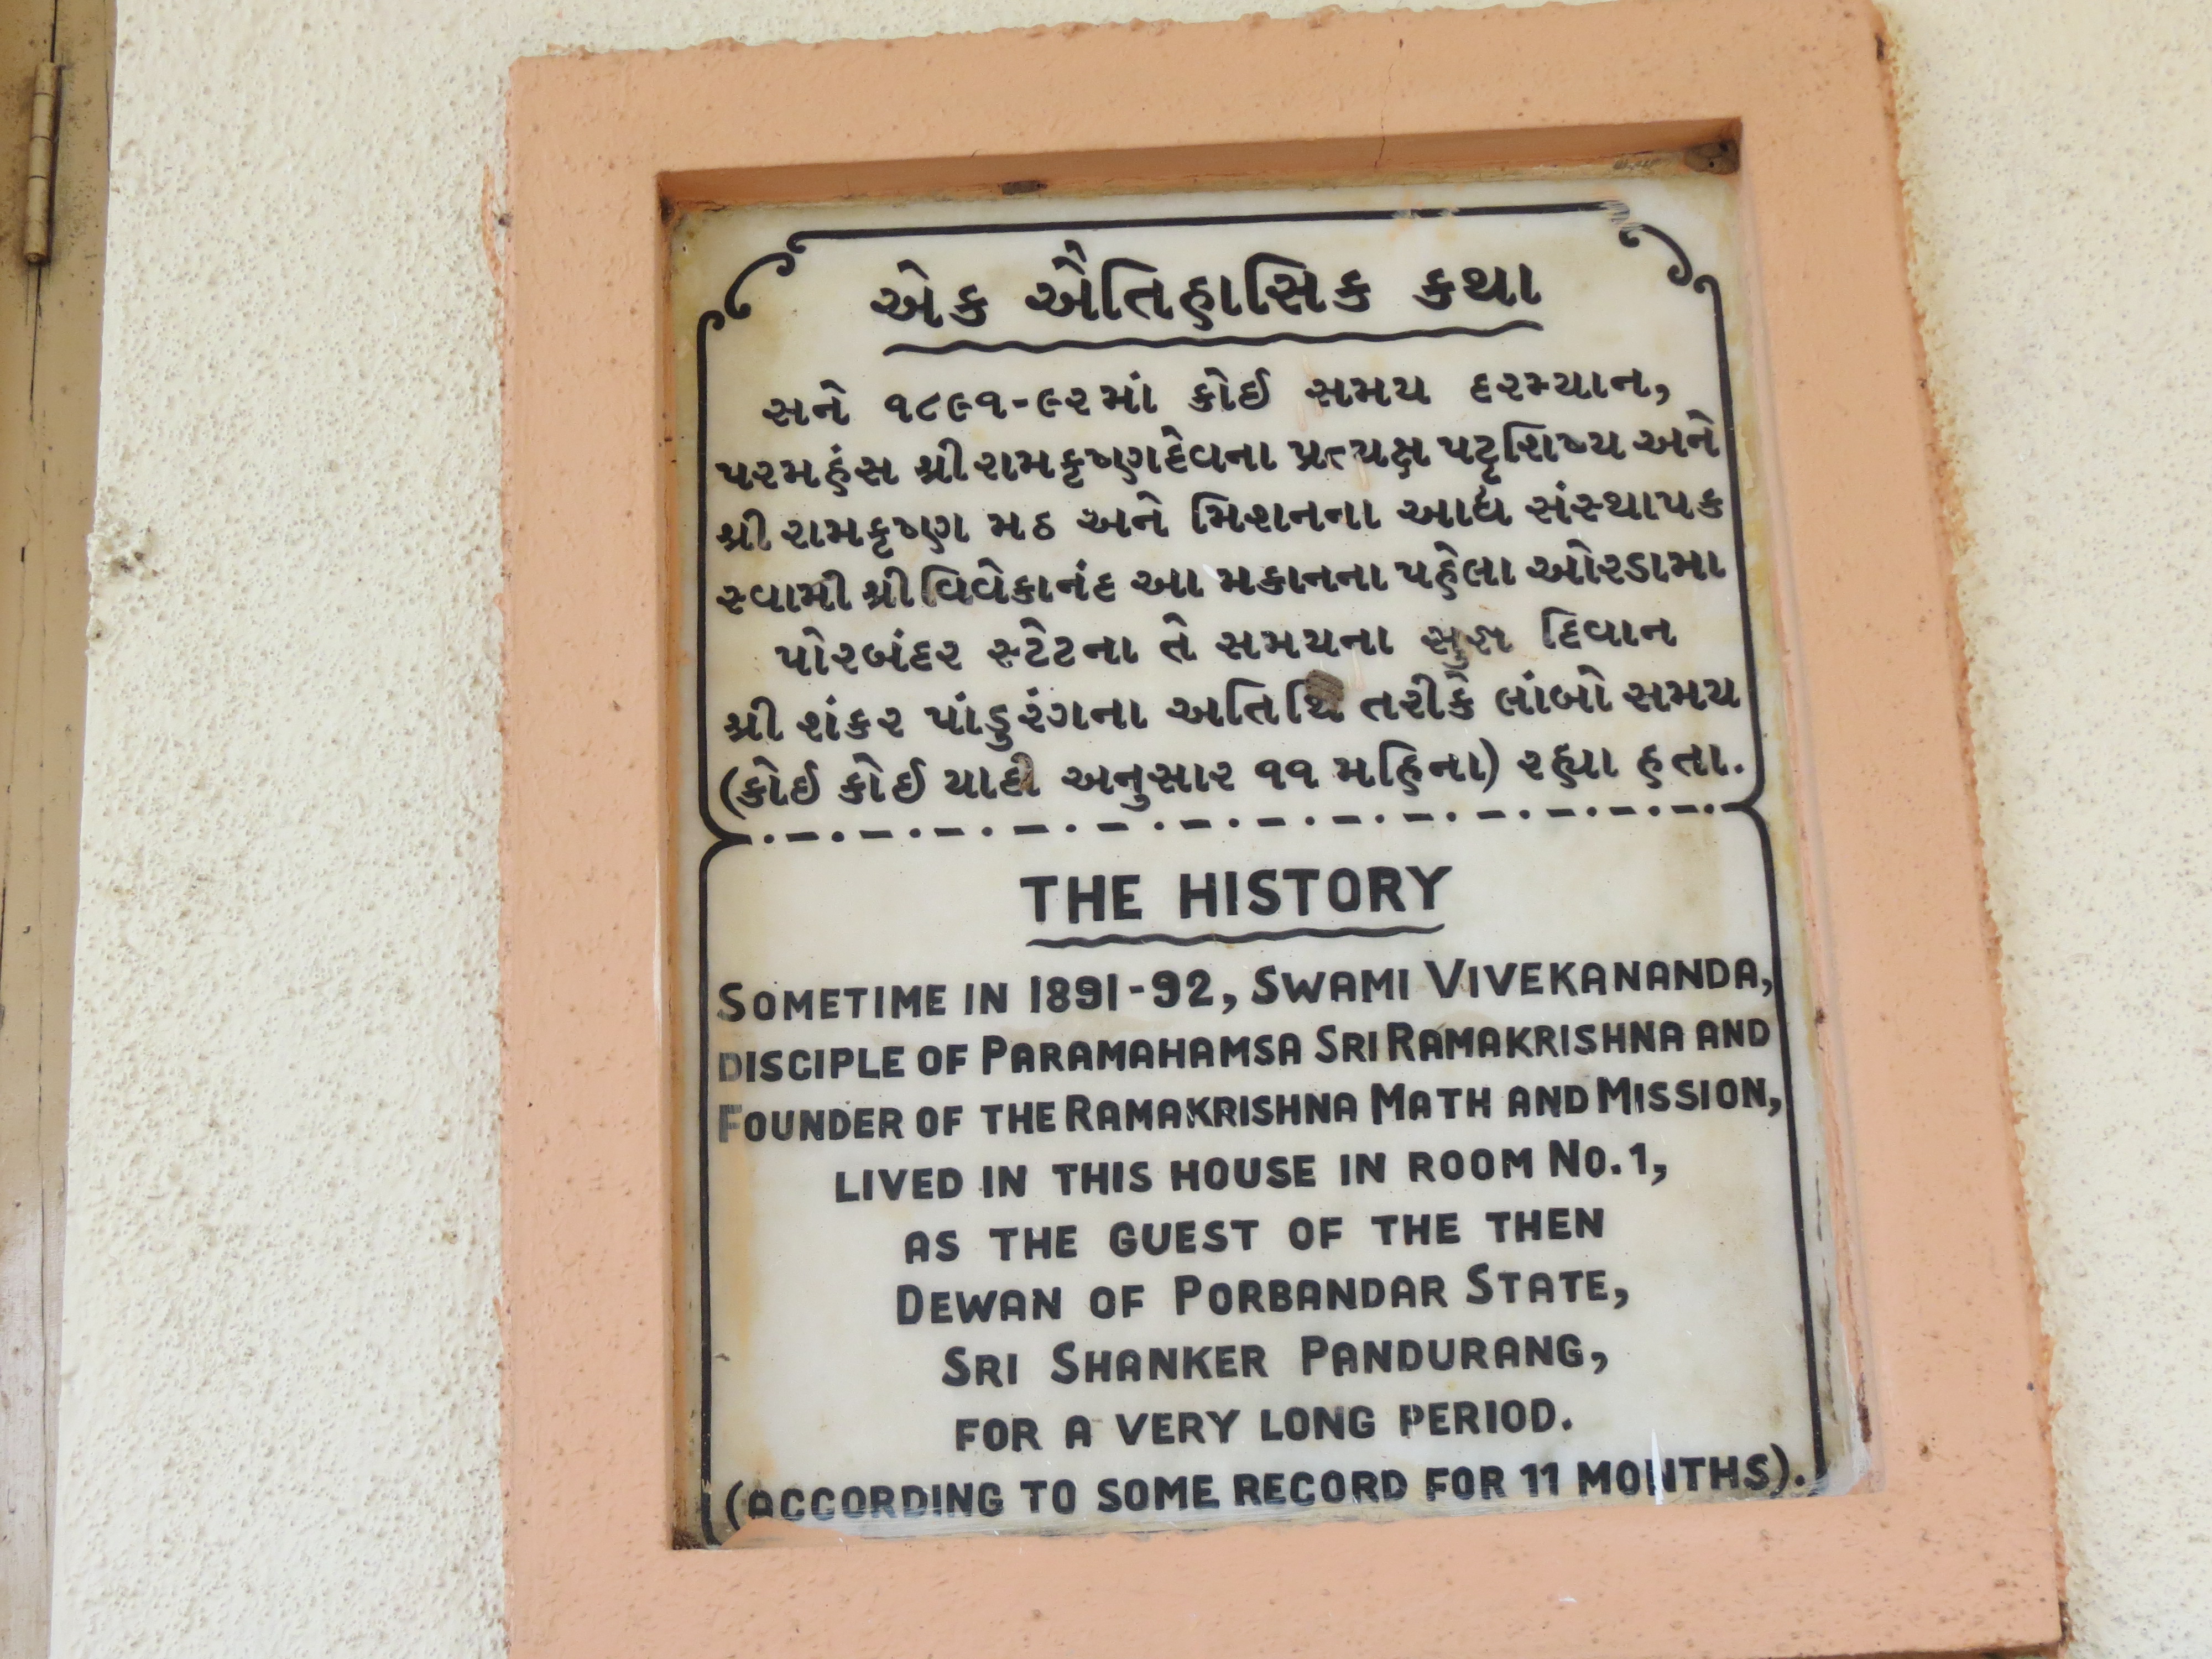 એક ઐતિહાસિક કથા
સને ૧૮૯૧-૯૨માં કોઈ સમય દરમ્યાન,
પરમહંસ શ્રી રામકૃષ્ણદેવના પ્રત્યક્ષ પટ્ટશિષ્ય અને
શ્રી રામકૃષ્ણ મઠ અને મિશનના આદ્ય સંસ્થાપક
સ્વામી શ્રી વિવેકાનંદ આ મકાનના પહેલા ઓરડામા
પોરબંદર સ્ટેટના તે સમયના સુજ્ઞ દિવાન
શ્રી શંકર પાંડુરંગના અતિથિ તરીકે લાંબો સમય
(કોઈ કોઈ યાદી અનુસાર ૧૧ મહિના) રહ્યા હતા.
THE HISTORY
SOMETIME IN 1891-92, SWAMI VIVEKANANDA,
DISCIPLE OF PARAMAHAMSA SRI RAMAKRISHNA AND
FOUNDER OF THE RAMAKRISHNA MATH AND MISSION,
LIVED IN THIS HOUSE IN ROOM NO. 1,
AS THE GUEST OF THE THEN
DEWAN OF PORBANDAR STATE,
SRI SHANKER PANDURANG,
FOR A VERY LONG PERIOD.
(ACCORDING TO SOME RECORD FOR 11 MONTHS).